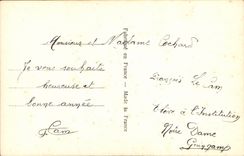 Monsieur et Madame Cochard
Je vous souhaite
heureuse et
bonne année
Fabriqué en France - Made in France
François Le Cam
élève à l'Institution
Notre Dame
Guingamp